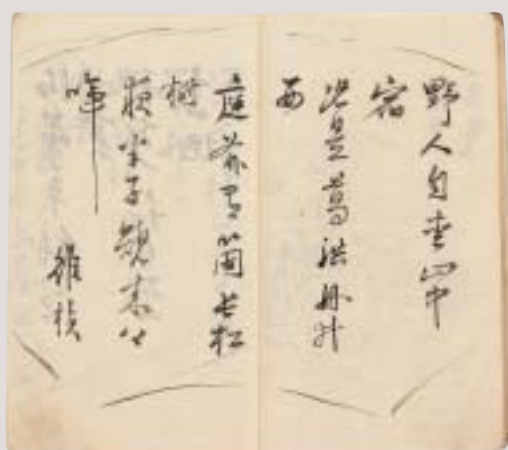 野人自愛山中
宿
況是葛洪丹井
西
庭前有箇長松
樹
夜半子規來上
啼
維楨